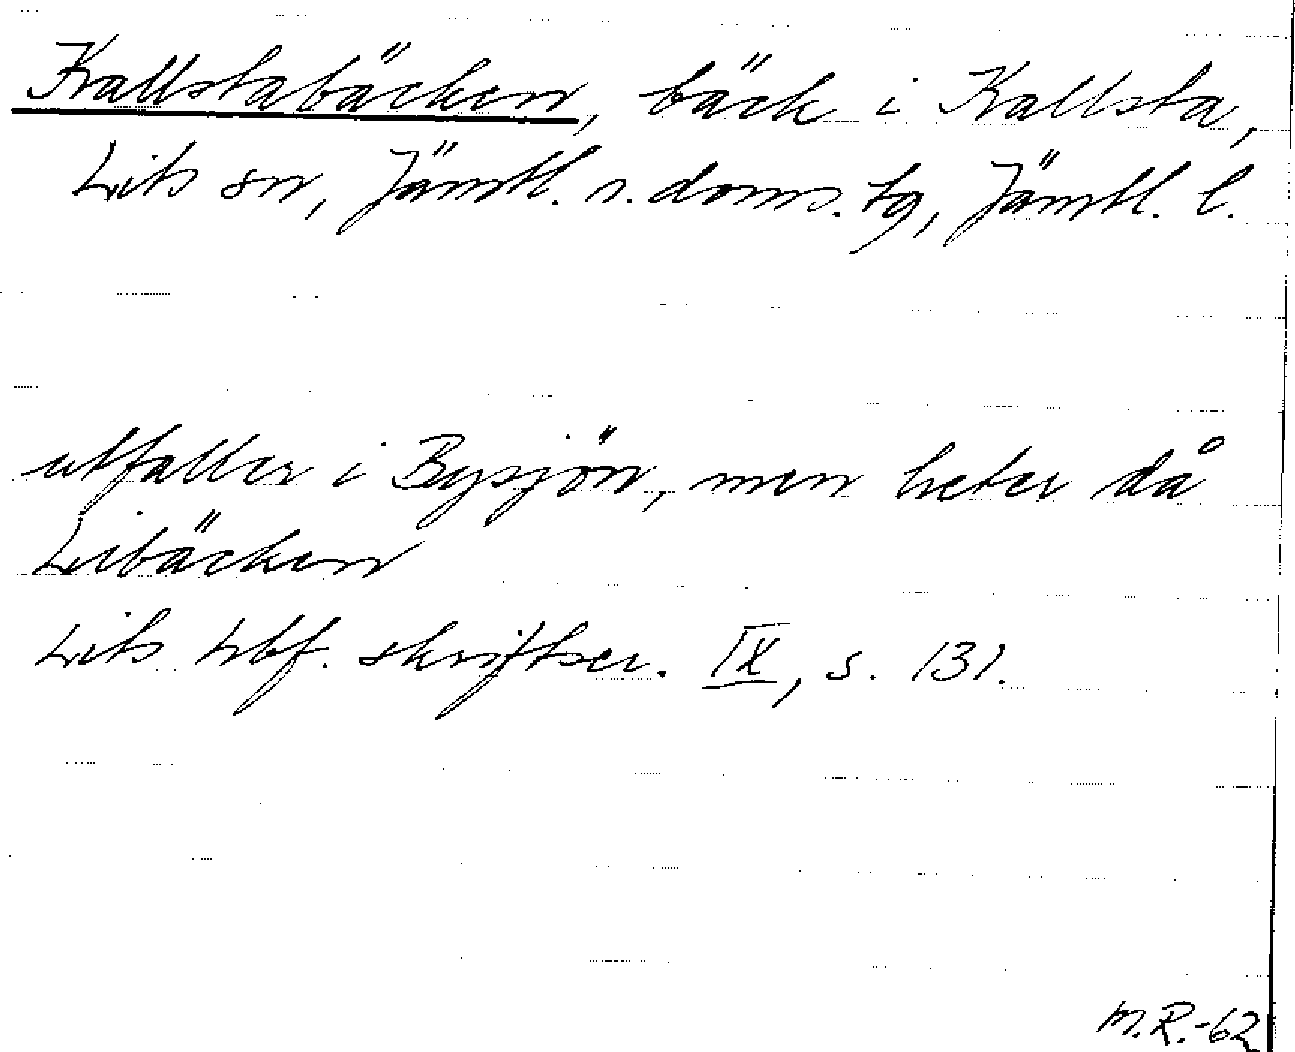 Kallstabäcken, bäck i Kallsta,
Lits sn, Jämtl. n. doms. tg, Jämtl. l.
utfaller i Bysjön, men heter då
Libäcken
Lits hbf. skriftser. IX, s. 131.
M.R.-62